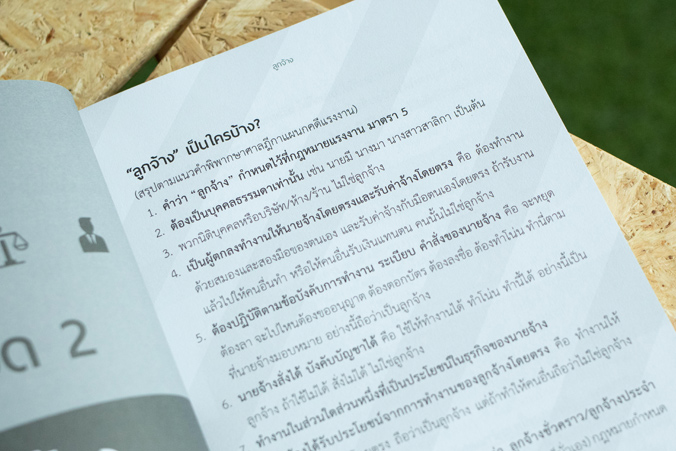 ลูกจ้าง
"ลูกจ้าง" เป็นใครบ้าง?
(สรุปตามแนวคำพิพากษาศาลฎีกาแผนกคดีแรงงาน)
1. คำว่า "ลูกจ้าง" กำหนดไว้ที่กฎหมายแรงงาน มาตรา 5
2. ต้องเป็นบุคคลธรรมดาเท่านั้น เช่น นายมี นางมา นางสาวสาลิกา เป็นต้น
3. พวกนิติบุคคลหรือบริษัท/ห้าง/ร้าน ไม่ใช่ลูกจ้าง
4. เป็นผู้ตกลงทำงานให้นายจ้างโดยตรงและรับค่าจ้างโดยตรง คือ ต้องทำงาน
ด้วยสมองและสองมือของตนเอง และรับค่าจ้างกับมือตนเองโดยตรง ถ้ารับงาน
แล้วไปให้คนอื่นทำ หรือให้คนอื่นรับเงินแทนตน คนนั้นไม่ใช่ลูกจ้าง
5. ต้องปฏิบัติตามข้อบังคับการทำงาน ระเบียบ คำสั่งของนายจ้าง คือ จะหยุด
ต้องลา จะไปไหนต้องขออนุญาต ต้องตอกบัตร ต้องลงชื่อ ต้องทำโน่น ทำนี่ตาม
ที่นายจ้างมอบหมาย อย่างนี้ถือว่าเป็นลูกจ้าง
6. นายจ้างสั่งได้ บังคับบัญชาได้ คือ ใช้ให้ทำงานได้ ทำโน่น ทำนี้ได้ อย่างนี้เป็น
ลูกจ้าง ถ้าใช้ไม่ได้ สั่งไม่ได้ ไม่ใช่ลูกจ้าง
7. ทำงานในส่วนใดส่วนหนึ่งที่เป็นประโยชน์ในธุรกิจของนายจ้าง
ได้รับประโยชน์จากการทำงานของลูกจ้างโดยตรง คือ ทำงานให้
ถือว่าเป็นลูกจ้าง แต่ถ้าทำให้คนอื่นถือว่าไม่ใช่ลูกจ้าง
ลูกจ้างชั่วคราว/ลูกจ้างประจำ
กฎหมายกำหนด
2